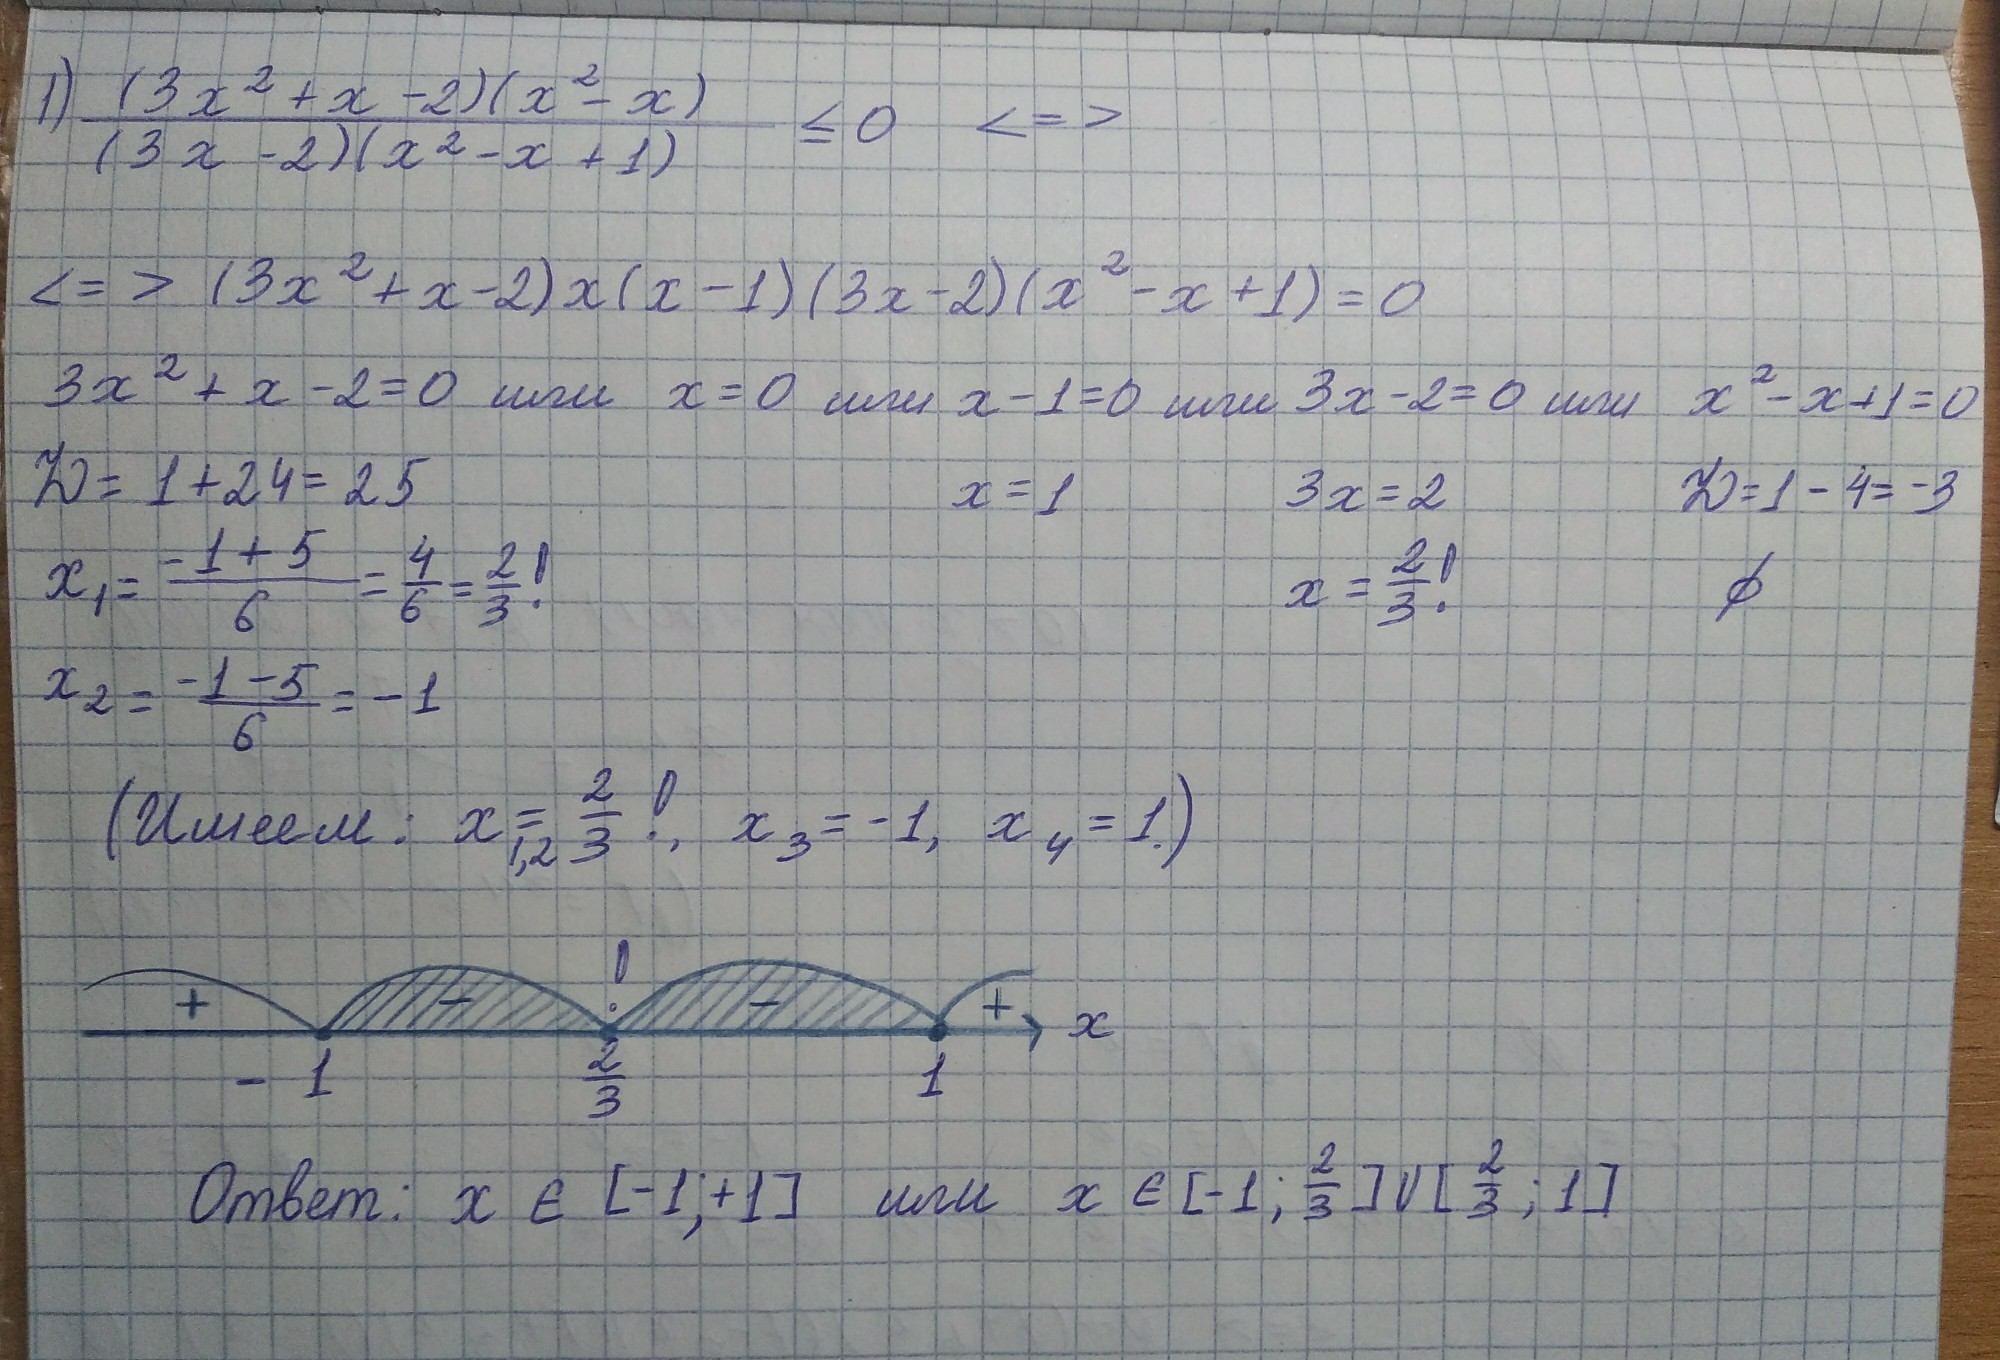 1) (3x² + x - 2)(x² - x)
(3x - 2)(x² - x + 1) ≤ 0 <=>
<=> (3x² + x - 2) x (x - 1) (3x - 2) (x² - x + 1) = 0
3x² + x - 2 = 0 или x = 0 или x - 1 = 0 или 3x - 2 = 0 или x² - x + 1 = 0
D = 1 + 24 = 25 x = 1 3x = 2 D = 1 - 4 = -3
x₁ = (-1 + 5)/6 = 4/6 = 2/3! x = 2/3! ∅
x₂ = (-1 - 5)/6 = -1
(Имеем: x₁,₂ = 2/3!, x₃ = -1, x₄ = 1.)
+ - ! - + x
- 1 2/3 1
Ответ: x ∈ [-1; +1] или x ∈ [-1; 2/3] ∪ [2/3; 1]